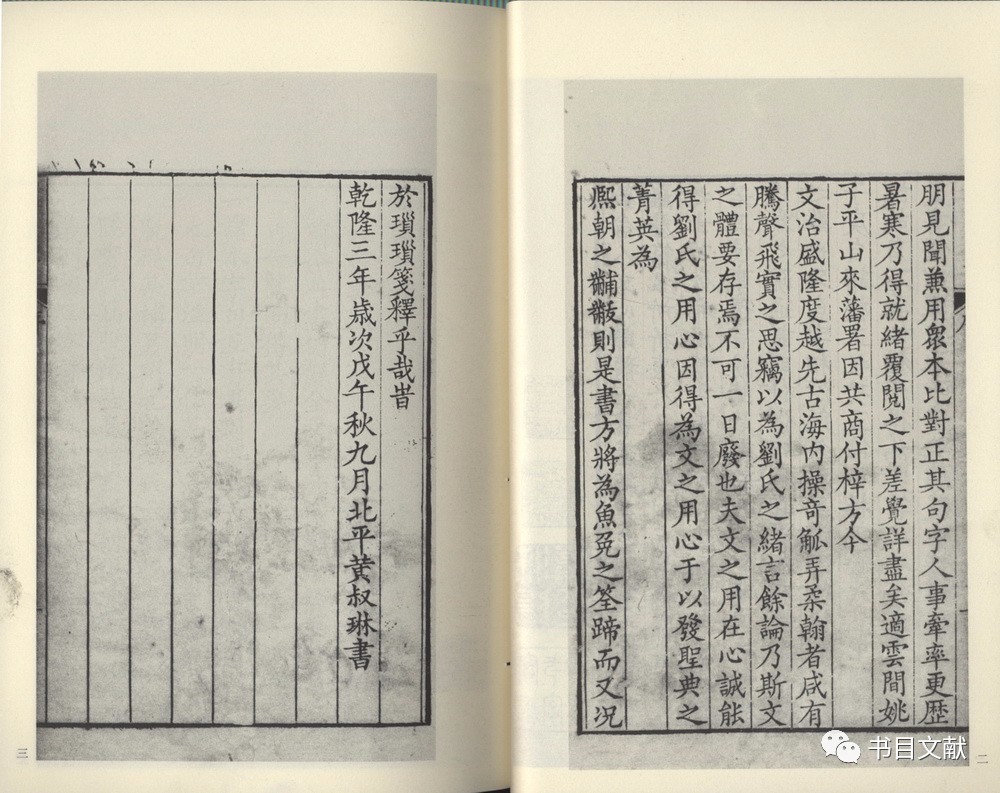 朋見聞兼用衆本比對正其句字人事牽率更歷
暑寒乃得就緒覆閱之下差覺詳盡矣適雲間姚
子平山來藩署因共商付梓方今
文治盛隆度越先古海内操奇觚弄柔翰者咸有
騰聲飛實之思竊以為劉氏之緒言餘論乃斯文
之體要存焉不可一日廢也夫文之用在心誠能
得劉氏之用心因得為文之用心于以發聖典之
菁英為
熙朝之黼黻則是書方將為魚兔之筌蹄而又况
二
於瑣瑣箋釋乎哉旹
乾隆三年歲次戊午秋九月北平黃叔琳書
三
书目文献